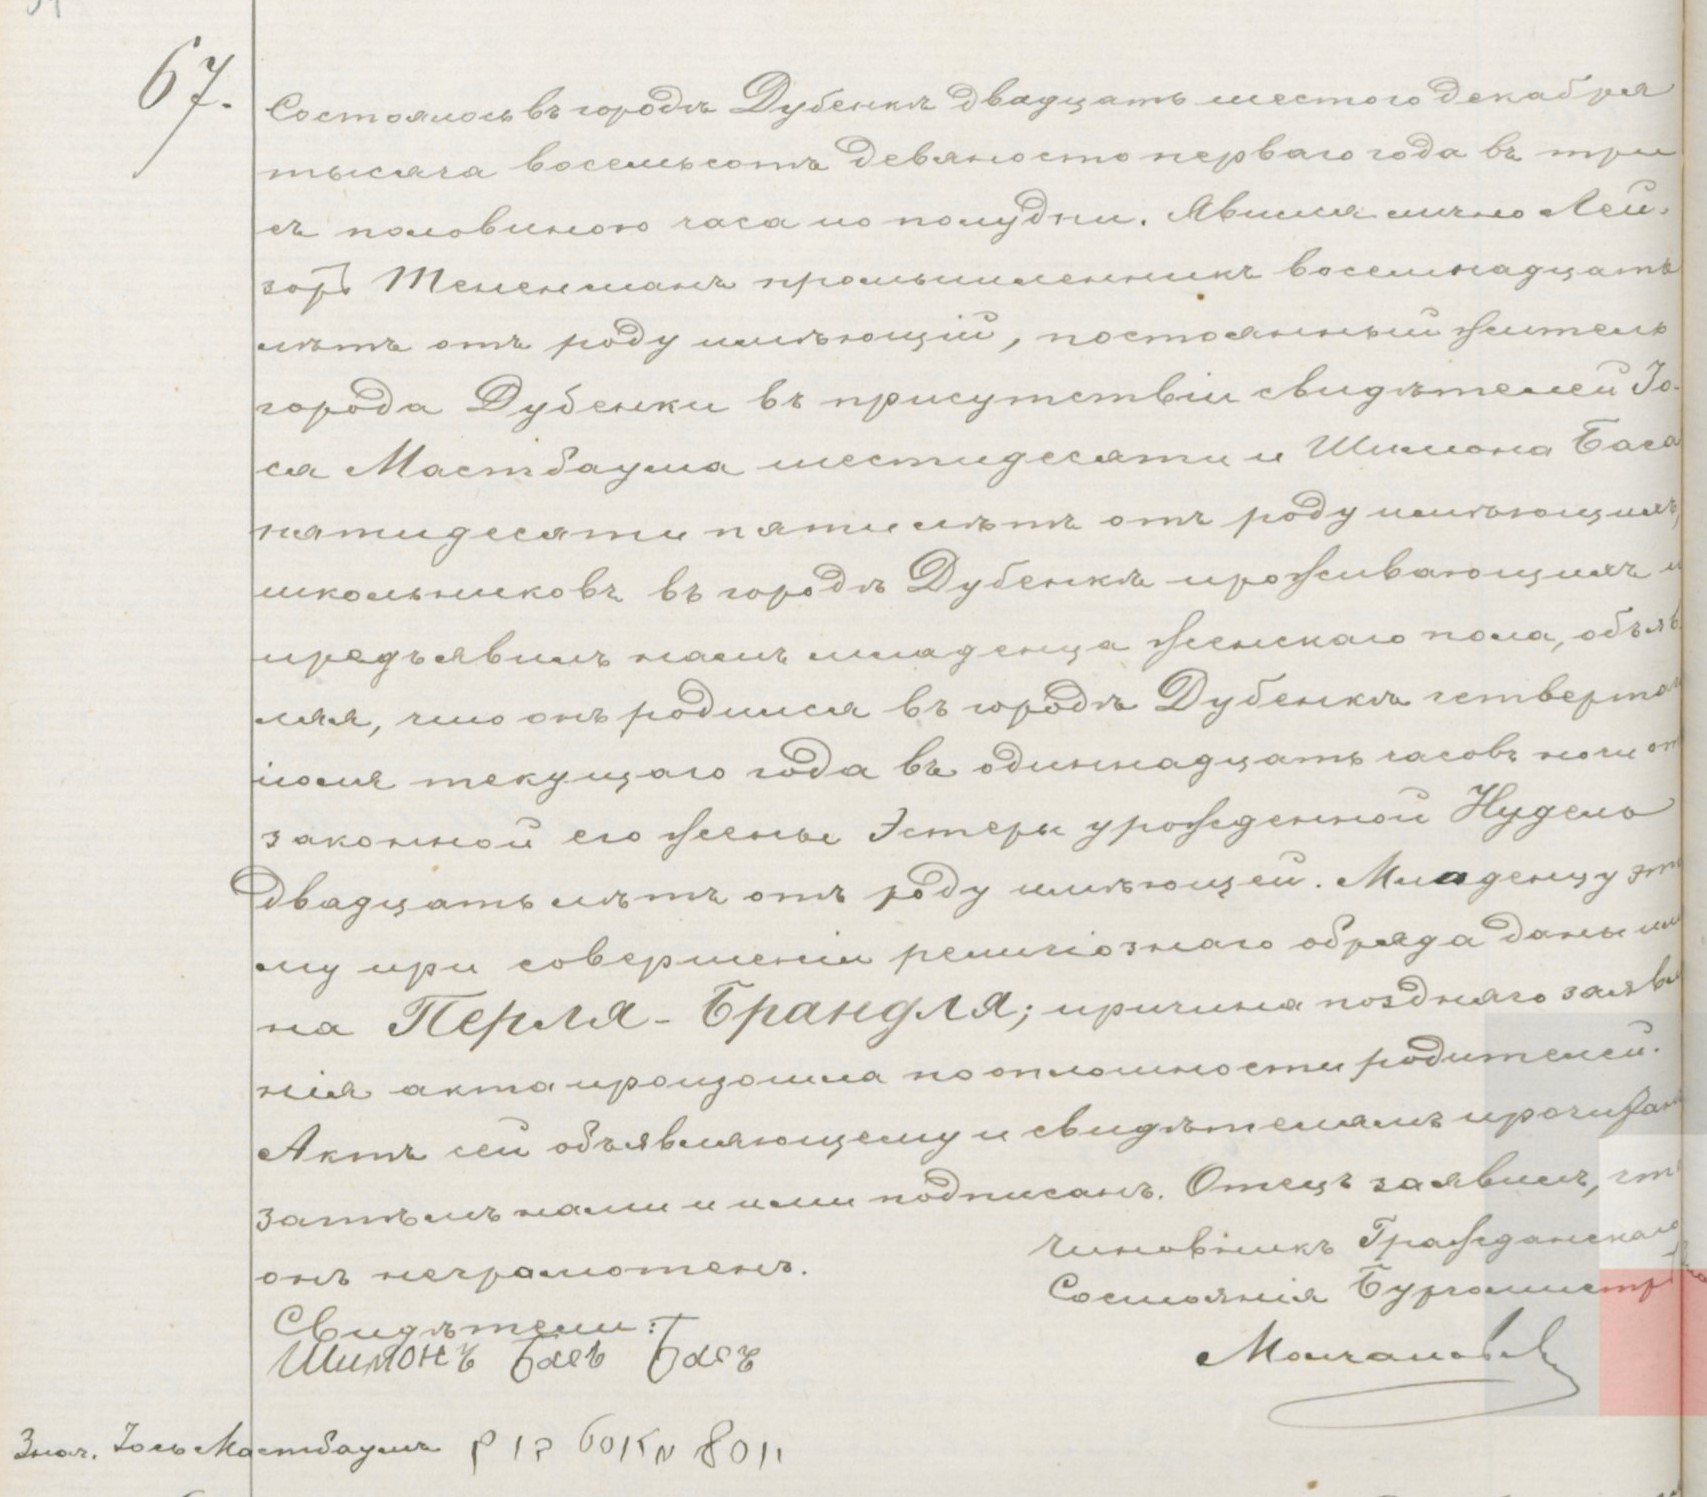 67.
Состоялось въ городѣ Дубенкѣ двадцать шестого декабря
тысяча восемьсотъ девяносто перваго года въ три
съ половиною часа по полудни. Явился лично Лей-
зоръ Тененманъ промышленникъ восемнадцать
лѣтъ отъ роду имѣющій, постоянный житель
города Дубенки въ присутствіи свидѣтелей Іо-
ся Мастбаума шестидесяти и Шимона Баса
пятидесяти пяти лѣтъ отъ роду имѣющихъ,
школьниковъ въ городѣ Дубенкѣ проживающихъ и
предъявилъ намъ младенца женскаго пола, объяв
ляя, что онъ родился въ городѣ Дубенкѣ четвертаго
іюля текущаго года въ одиннадцать часовъ ночи отъ
законной его жены Эстеры урожденной Нудель
двадцать лѣтъ отъ роду имѣющей. Младенцу это
му при совершеніи религіознаго обряда даны име
на Перля-Брандля; причина поздняго заявле
нія акта произошла по оплошности родителей.
Актъ сей объявляющему и свидѣтелямъ прочитанъ
затѣмъ нами и ими подписанъ. Отецъ заявилъ, что
онъ неграмотенъ.
Чиновникъ Гражданскаго
Состоянія Бургомистръ
Свидѣтели:
Шимонъ Басъ Басъ
Знач. Іось Мастбаумъ